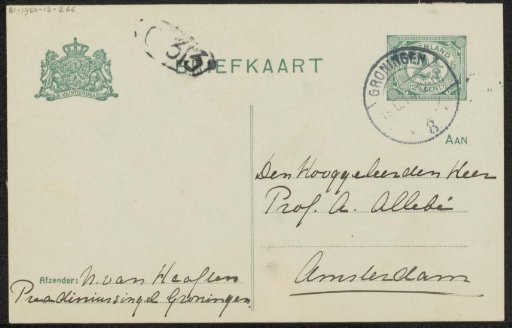 BI-1950-17-266
313
BRIEFKAART
GRONINGEN
8
AAN
Den Hooggeleerden Heer
Prof. A. Allebé
Amsterdam
Afzender: N. van Haaften
Praediniussingel Groningen